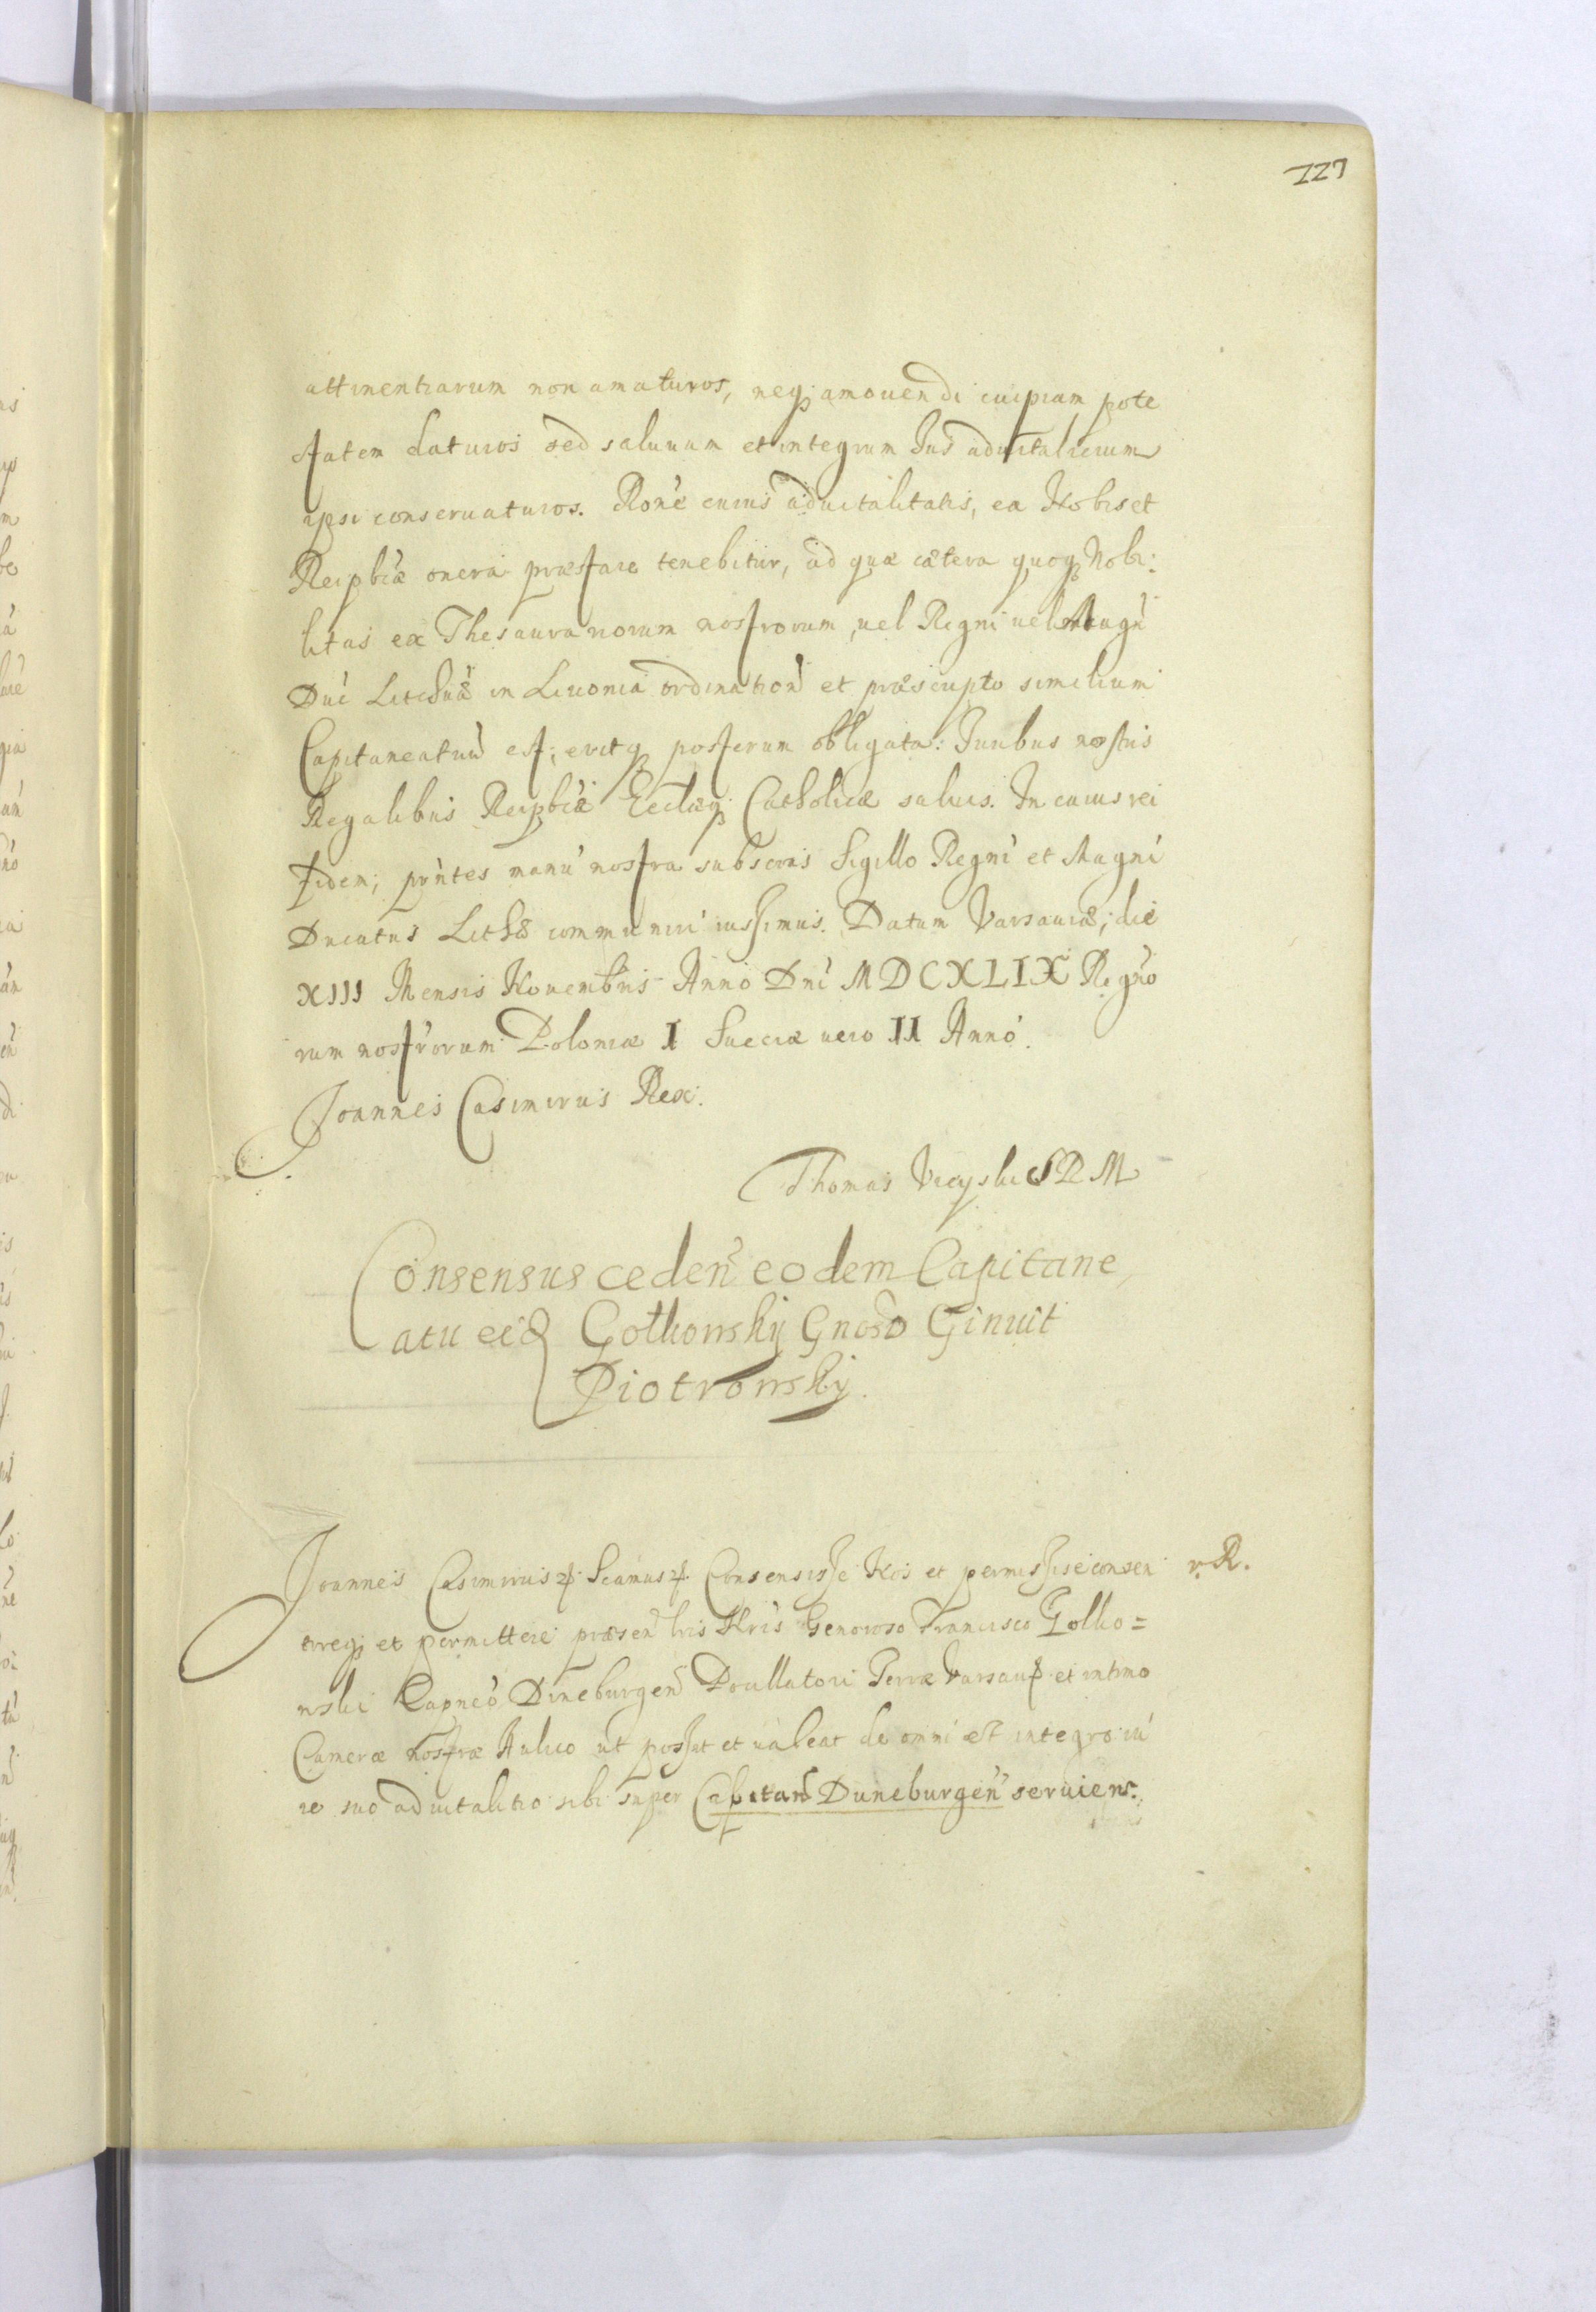 127
attinentiarum non amoturos, neq; amouendi cuipiam pote
statem daturos sed saluum et integrum Jus aduitalicium
ipsi conseruaturos. Rone cuius aduitalitatis, ea Nobis et
Reipblicæ onera præstare tenebitur, ad quæ cætera quoq; Nobi:
litas ex Thesaurariorum nostrorum, uel Regni uel Magni
Duc Lithuæ in Liuonia ordination et præscripto similium
Capitaneatuu est, eritq; posterum obligata: Juribus nostris
Regalibus Reipblicæ Ecclæq; Catholicæ saluis. In cuius rei
fidem, pntes manu nostra subscris Sigillo Regni et Magni
Ducatus Lithæ communiri iussimus. Datum Varsauiæ, die
XIII Mensis Nouembris Anno Dni MDCXLIX Regno
rum nostrorum Poloniæ I Sueciæ uero II Anno.
Joannes Casimirus Rex.
Thomas Vieyski S R M
Consensus ceden eodem Capitane
atu Gotkowskij Gnoso Ginuit
Piotrowskij.
Joannes Casimirus Consensisse Nos et permisisse consen r. R.
tireq; et permittere præsen lris Nris Generoso Francisco Golko=
wski Capneo Dineburgen Terræ Varsau et intimo
Cameræ Nostræ Aulico ut possit et ualeat de omni et integro iu
re suo aduitalitio sibi super Capitan Duneburgen seruiens.